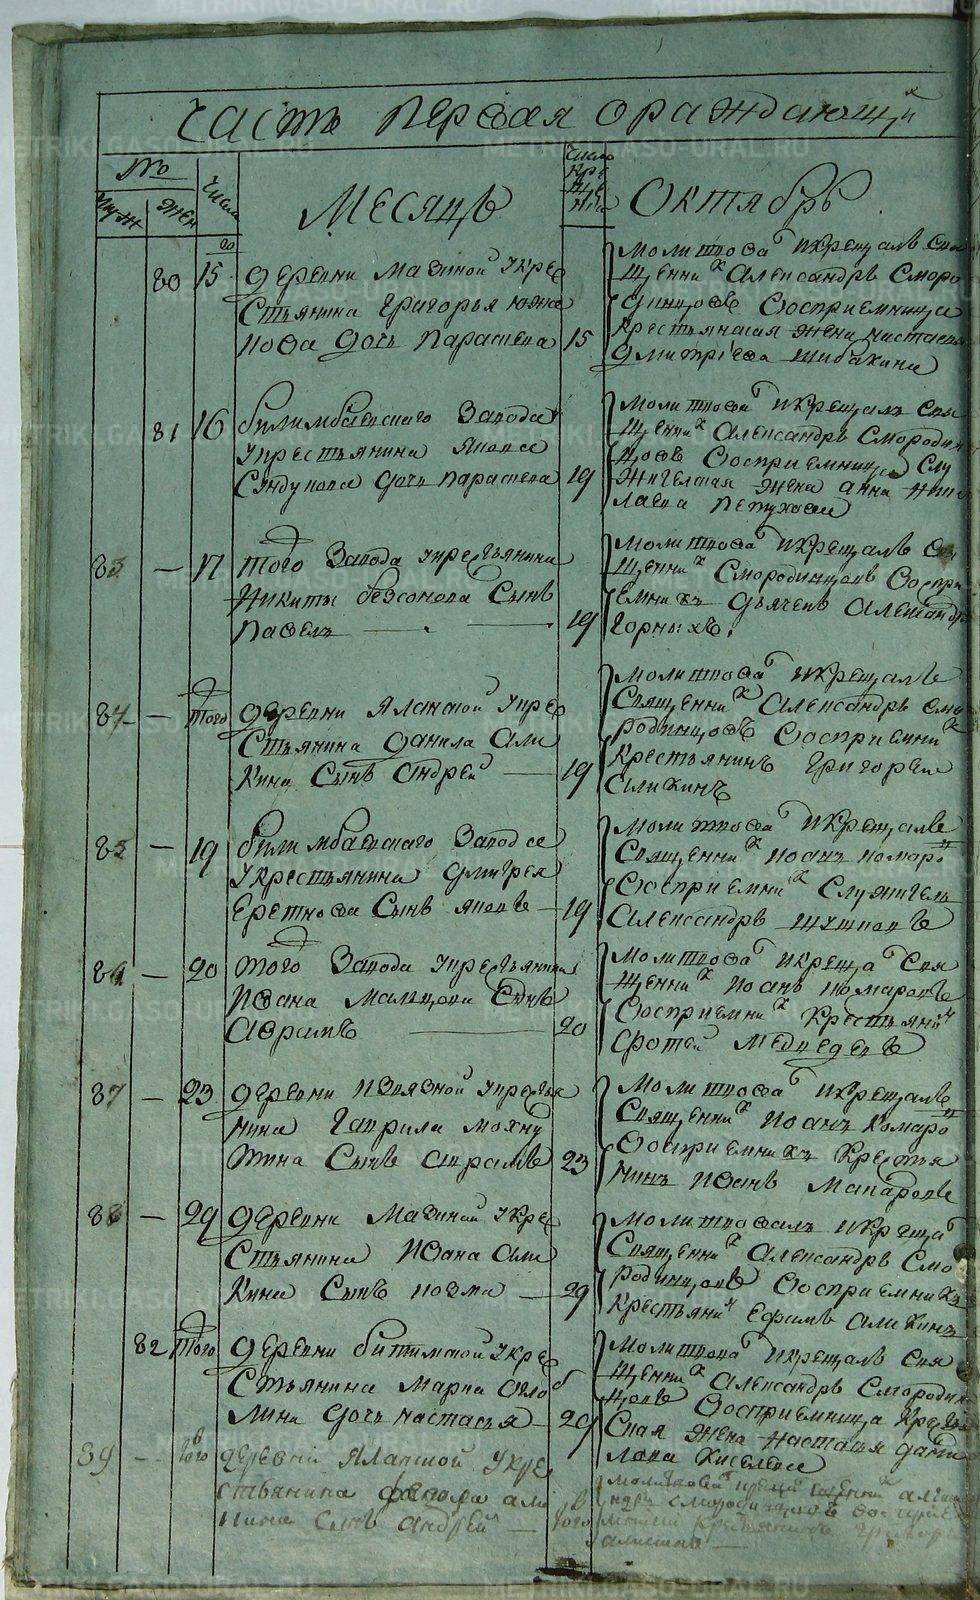 Часть первая о раждающих
№
Муж
жен
Числа
Месяцъ
Число Кре ще нія
Октябрь
80 15 деревни Мазиной у кре
стьянина Григорья
нова дочь Параскева 15
молитвова и крещалъ свя
щенникъ Александръ Сморо
динцовъ воспріемница
крестьянская жена Настасья
Дмитріева Шибакина
81 16 билимбаевскаго завода
у крестьянина Якова
Сундукова дочь Параскева 19
молитвова и крещалъ свя
щенникъ Александръ Смородин
цовъ воспріемница слу
жительская жена Анна Нико
лаева Петухова
83 — 17 того завода у крестьянина
Никиты безсонова сынъ
Павелъ — 19
молитвова и крещалъ свя
щенникъ Смородинцовъ воспрі
емникъ дьячекъ Александръ
Горныхъ.
84 — того деревни Яланской у кре
стьянина Данила Али
кина сынъ Андрей — 19
молитвова и крещалъ
священникъ Александръ Смо
родинцовъ воспріемникъ
крестьянинъ Григорьи
Аликинъ
85 — 19 билимбаевскаго завода
у крестьянина Дмитрея
Еретнова сынъ Яковъ — 19
молитвова и крещалъ
священникъ Иоанъ Комаро
воспріемникъ служитель
Александръ
86 — 20 того завода у крестьянина
Ивана Мальцова сынъ
Абрамъ — 20
молитвова и креща свя
щенникъ Иоанъ Комаровъ
воспріемникъ крестьянинъ
Фотей Медведевъ
87 — 23 деревни Извязной у крестья
нина Гаврила Махну
тина сынъ Аврамъ 23
молитвова и крещалъ
священникъ Иоанъ Комаро
воспріемникъ крестья
нинъ Иванъ Макаровъ
88 — 29 деревни Мазиной у кре
стьянина Ивана Али
кина сынъ Козма — 29
молитвовалъ и креща
священникъ Александръ Смо
родинцовъ воспріемникъ
крестьянинъ Ефимъ Аликинъ
82 того деревни битимской у кре
стьянина Марка
лина дочь Настасья — 29
молитвова и крещалъ свя
щенникъ Александръ Смородин
цовъ воспріемница крестьян
ская жена Настасья Дани
лова Киселева
89 — того деревни Яланской у кре
стьянина Федора Али
кина сынъ Андрей — того